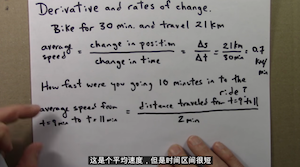 Derivative and rates of change.
Bike for 30 min. and travel 21 km
average speed = change in position / change in time = Δs / Δt = 21 km / 30 min = 0.7 km/min
How fast were you going 10 minutes in to the ride?
average speed from t=9 min to t=11 min = distance traveled for t=9 to 11 / 2 min
这是个平均速度，但是时间区间很短